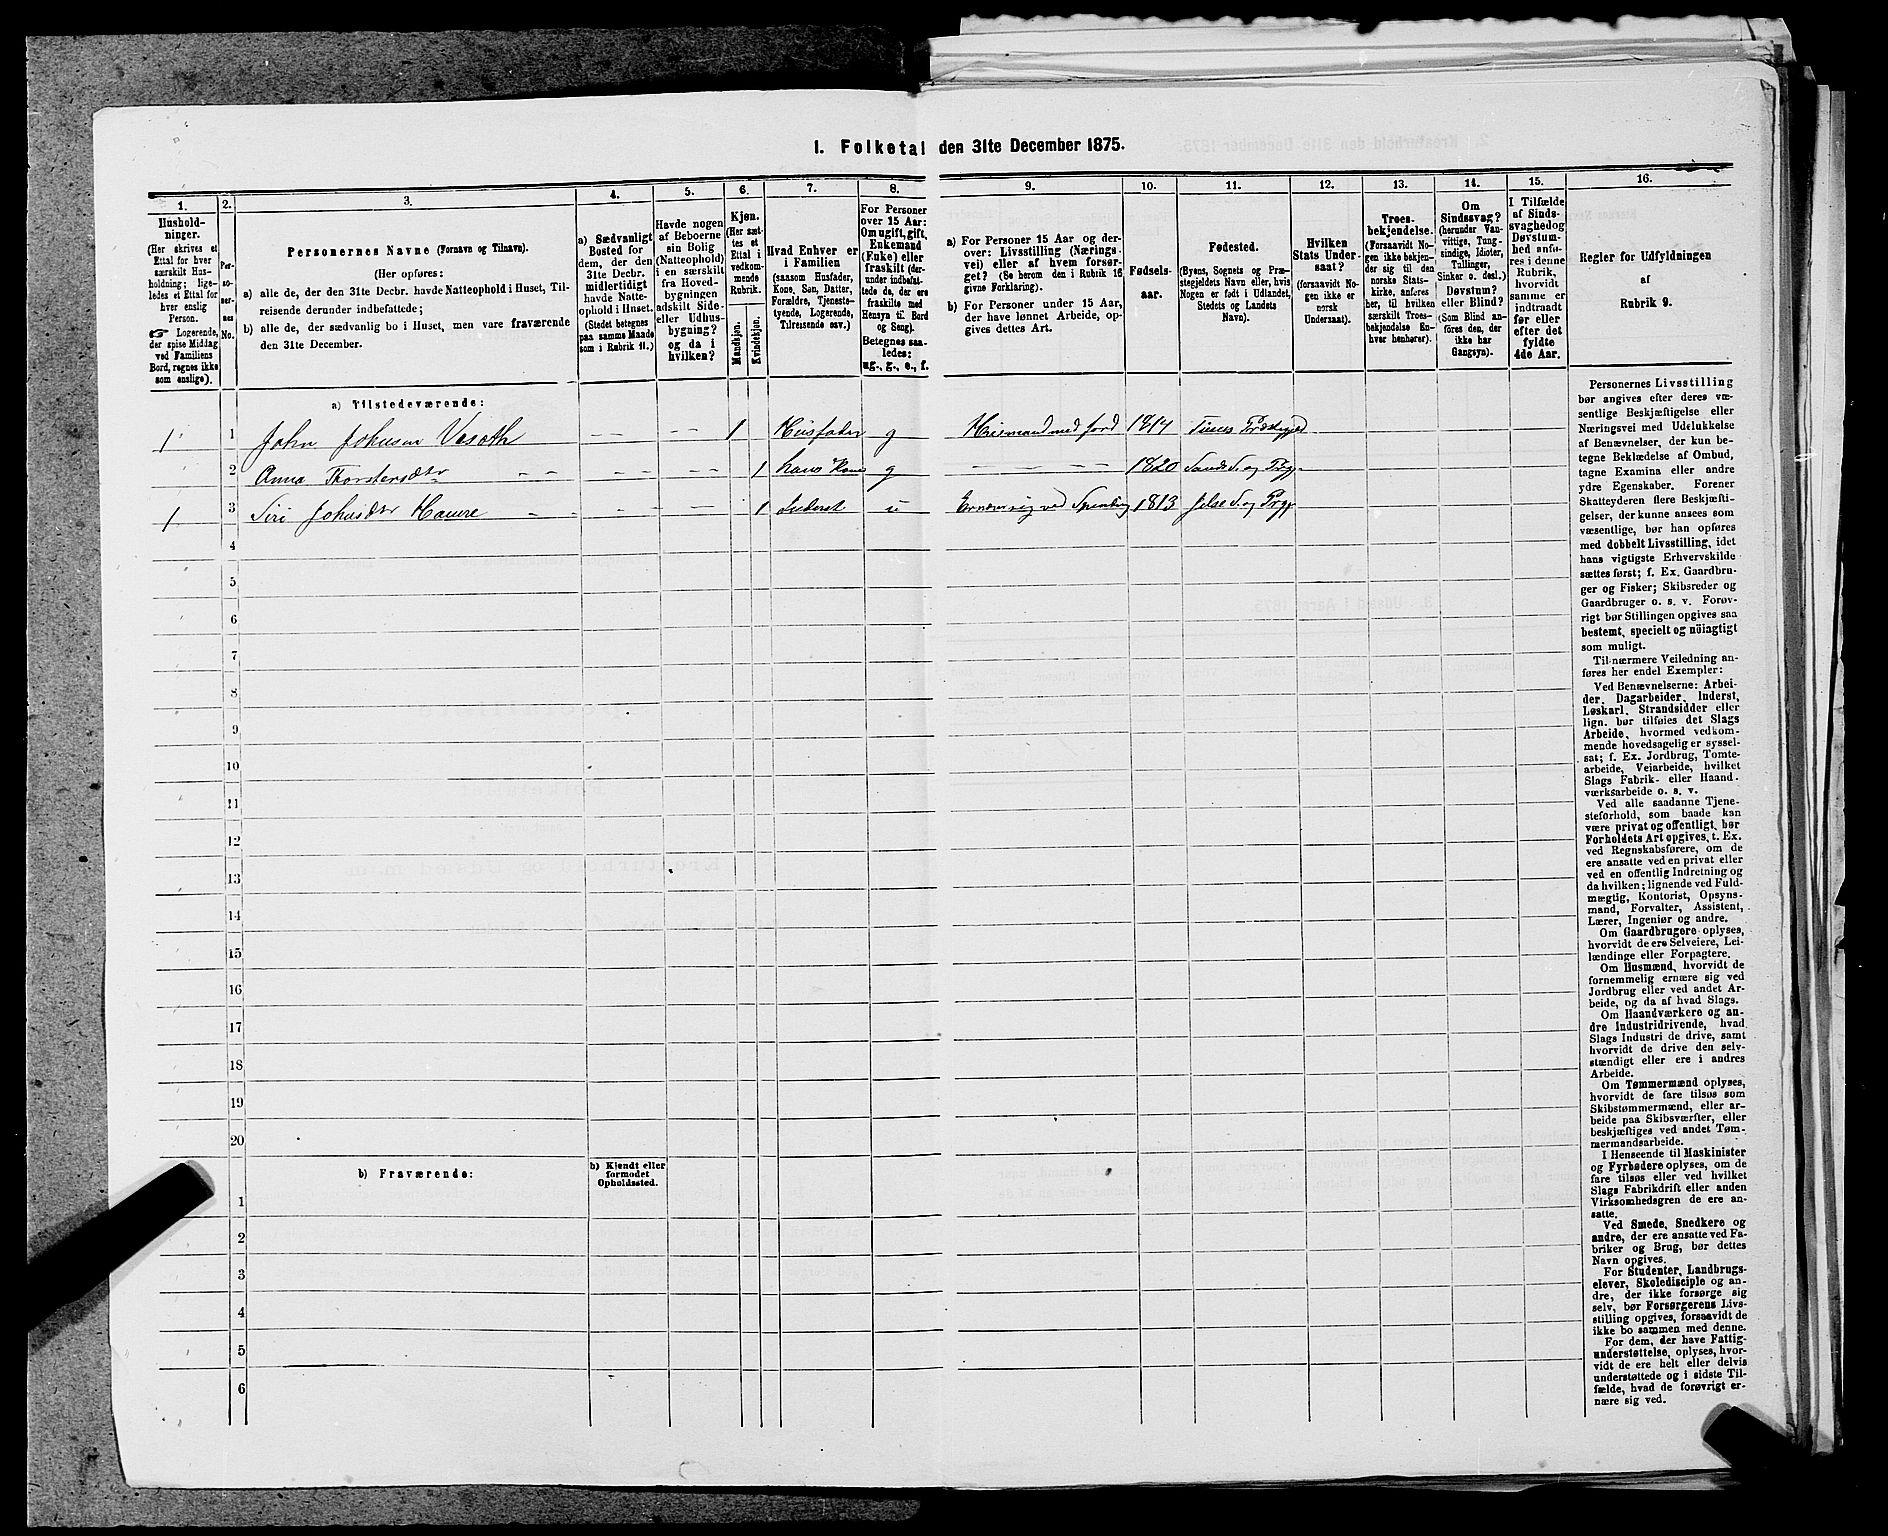 1. Folketal den 31te December 1875.
1.
2.
3.
4.
5.
6.
7.
8.
9.
10.
11.
12.
13.
14.
15.
16.
Hushold-
ninger.
(Her skrives et
Ettal for hver
særskilt Hus-
holdning; lige-
ledes et Ettal for
hver enslig
Person.
☞ Logerende,
der spise Middag
ved Familiens
Bord, regnes ikke
som enslige).
Per-
so-
ner-
nes
No.
Personernes Navne (Fornavn og Tilnavn).
(Her opføres:
a) alle de, der den 31te Decbr. havde Natteophold i Huset, Til-
reisende derunder indbefattede;
b) alle de, der sædvanlig bo i Huset, men vare fraværende
den 31te December.
a) Sædvanligt
Bosted for
dem, der den
31te Decbr.
midlertidigt
havde Natte-
ophold i Huset.
(Stedet betegnes
paa samme Maade
som i Rubrik 11.)
Havde nogen
af Beboerne
sin Bolig
(Natteophold)
i en særskilt
fra Hoved-
bygningen
adskilt Side-
eller Udhus-
bygning?
og da i
hvilken?
Kjøn.
(Her sæt-
tes et
Ettal i
vedkom-
mende
Rubrik.
Mandkjøn.
Kvindekjøn.
Hvad Enhver er
i Familien
(saasom Husfader,
Kone, Søn, Datter,
Forældre, Tjeneste-
tyende, Logerende,
Tilreisende osv.)
For Personer
over 15 Aar:
Om ugift, gift,
Enkemand
(Enke) eller
fraskilt (der-
under indbefat-
tede de, der ere
fraskilte med
Hensyn til Bord
og Seng).
Betegnes saa-
ledes:
ug., g., e., f.
a) For Personer 15 Aar og der-
over: Livsstilling (Nærings-
vei) eller af hvem forsør-
get? (Se herom den i Rubrik 16
givne Forklaring).
b) For Personer under 15 Aar,
der have lønnet Arbeide, op-
gives dettes Art.
Fødsels-
aar.
Fødested.
(Byens, Sognets og Præ-
stegjeldets Navn eller, hvis
Nogen er født i Udlandet,
Stedets og Landets
Navn).
Hvilken
Stats Under-
saat?
(forsaavidt No-
gen ikke er
norsk
Undersaat).
Troes-
bekjendelse.
(Forsaavidt No-
gen ikke bekjen-
der sig til den
norske Stats-
kirke, anføres
her, til hvilken
særskilt Troes-
bekjendelse En-
hver henhører).
Om
Sindssvag?
(herunder Van-
vittige, Tung-
sindige, Idioter,
Tullinger,
Sinker o. desl.)
Døvstum?
eller Blind?
(Som Blind an-
føres den, der
ikke har
Gangsyn).
I Tilfælde
af Sinds-
svaghed og
Døvstum-
hed anfø-
res i denne
Rubrik,
hvorvidt
samme er
indtraadt
før eller
efter det
fyldte
4de Aar.
Regler for Udfyldningen
af
Rubrik 9.
a) Tilstedeværende:
1 1 John Johnsen Vasoth — — — — 1 Husfader g Huusmand med Jord 1814 Præstegjed
2 Anna Thorstensdtr — — — — — — 1 hans Kone g — — — — 1820 Sands S. og Prgj.
1 3 Siri Johnsdtr — — — — — — 1 Inderst u Ernærer sig ved 1813 Jelse S. og Prgj.
4
5
6
7
8
9
10
11
12
13
14
15
16
17
18
19
20
b) Fraværende:
b) Kjendt eller
formodet
Opholdssted.
1
2
3
4
5
6
Personernes Livsstilling
bør angives efter deres væ-
sentlige Beskjæftigelse eller
Næringsvei med Udelukkelse
af Benævnelser, der kun be-
tegne Beklædelse af Ombud,
tagne Examina eller andre
ydre Egenskaber. Forener
Skatteyderen flere Beskjæfti-
gelser, der kunne ansees som
væsentlige, bør han opføres
med dobbelt Livsstilling, idet
hans vigtigste Erhvervskilde
sættes først; f. Ex. Gaardbru-
ger og Fisker; Skibsreder og
Gaardbruger o. s. v. Forøv-
rigt bør Stillingen opgives saa
bestemt, specielt og nöiagtigt
som muligt.
Til nærmere Veiledning an-
føres her endel Exempler:
Ved Benævnelserne: Arbei-
der, Dagarbeider, Inderst,
Løskarl, Strandsidder eller
lign. bør tilføies det Slags
Arbeide, hvormed vedkom-
mende hovedsagelig er syssel-
sat; f. Ex. Jordbrug, Tomte-
arbeide, Veiarbeide, hvilket
Slags Fabrik- eller Haand-
værksarbeide o. s. v.
Ved alle saadanne Tjene-
steforhold, som baade kan
være privat og offentligt, bør
Forholdets Art opgives, t. Ex.
ved Regnskabsførere, om de
ere ansatte ved en privat eller
ved en offentlig Indretning og
da hvilken; lignende ved Fuld-
mægtig, Kontorist, Opsyns-
mand, Forvalter, Assistent,
Lærer, Ingeniør og andre.
Om Gaardbrugere oplyses,
hvorvidt de ere Selveiere, Lei-
lændinge eller Forpagtere.
Om Husmænd, hvorvidt de
fornemmelig ernære sig ved
Jordbrug eller ved andet Ar-
beide, og da af hvad Slags.
Om Haandværkere og an-
dre Industridrivende, hvad
Slags Industri de drive, samt
hvorvidt de drive den selv-
stændigt eller ere i andres
Arbeide.
Om Tømmermænd oplyses,
hvorvidt de fare tilsøs som
Skibstømmermænd, eller ar-
beide paa Skibsværfter, eller
beskjæftiges ved andet Tøm-
mermandsarbeide.
I Henseende til Maskinister
og Fyrbødere oplyses, om de
fare tilsøs eller ved hvilket
Slags Fabrikdrift eller anden
Virksomhedsgren de ere an-
satte.
Ved Smede, Snedkere og
andre, der ere ansatte ved Fa-
briker og Brug, bør dettes
Navn opgives.
For Studenter, Landbrugs-
elever, Skoledisciple og an-
dre, der ikke forsørge sig
selv, bør Forsørgerens Livs-
stilling opgives, forsaavidt de
ikke bo sammen med denne.
For dem, der have Fattig-
understøttelse, oplyses, hvor-
vidt de ere helt eller delvis
understøttede og i sidste Til-
fælde, hvad de forøvrigt er-
nære sig ved.